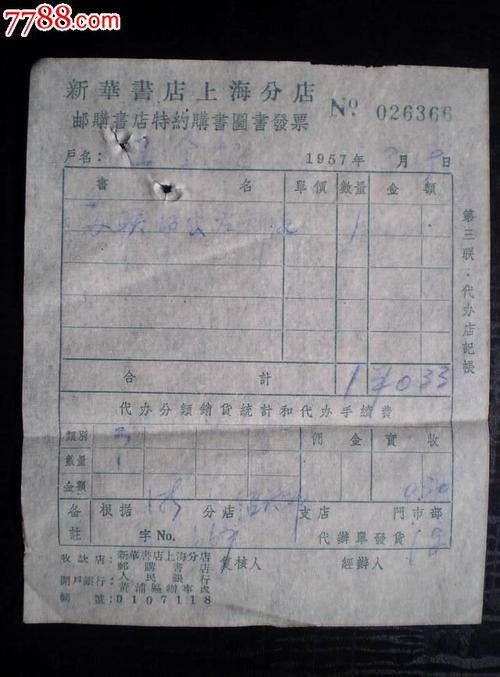 7788.com
新華書店上海分店
邮購書店特約購書圖書發票
№ 026366
戶名：
1957年 月 日
書 名 單價 數量 金 額
苏联 1
合 計 1 ¥0.33
代办分類銷貨統計和代办手續費
類別 佣 金 實 收
數量 1
金額 0.30
備註 根据 分店 支店 門市部
字No. 代辦單發貨
收款店：新華書店上海分店
邮購書店
開戶銀行：人民銀行
黄浦區辦事處
帳號：0107118
復核人 經辦人
第三联·代办店記帳